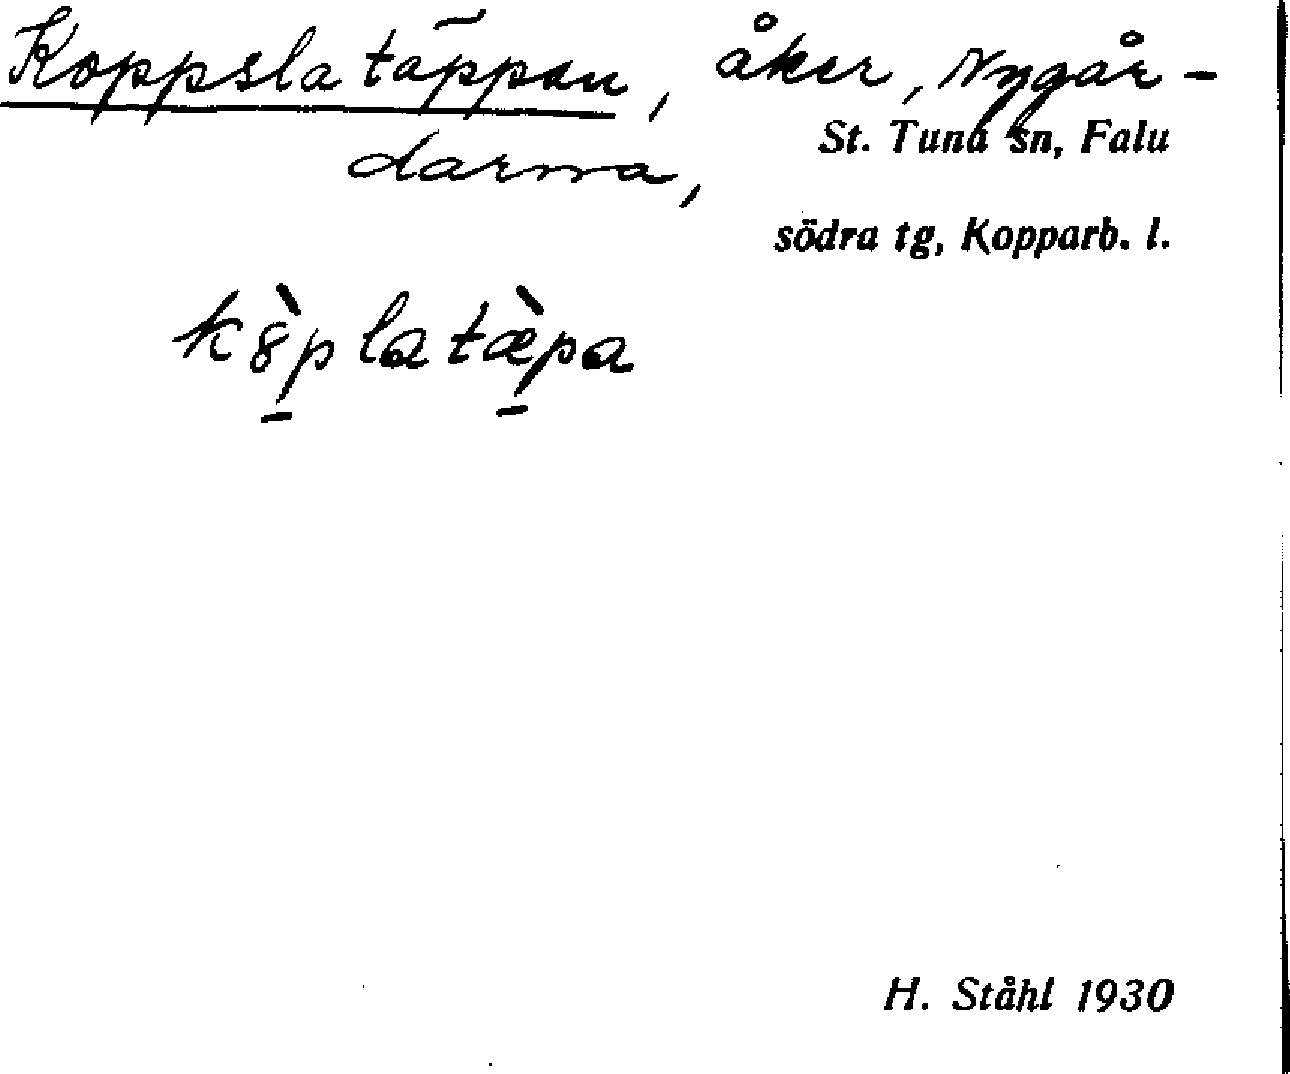 Koppslatäppan, åker, Nygår-
St. Tuna sn, Falu
darna,
södra tg, Kopparb. l.
kö̀platæ̀pa
H. Ståhl 1930